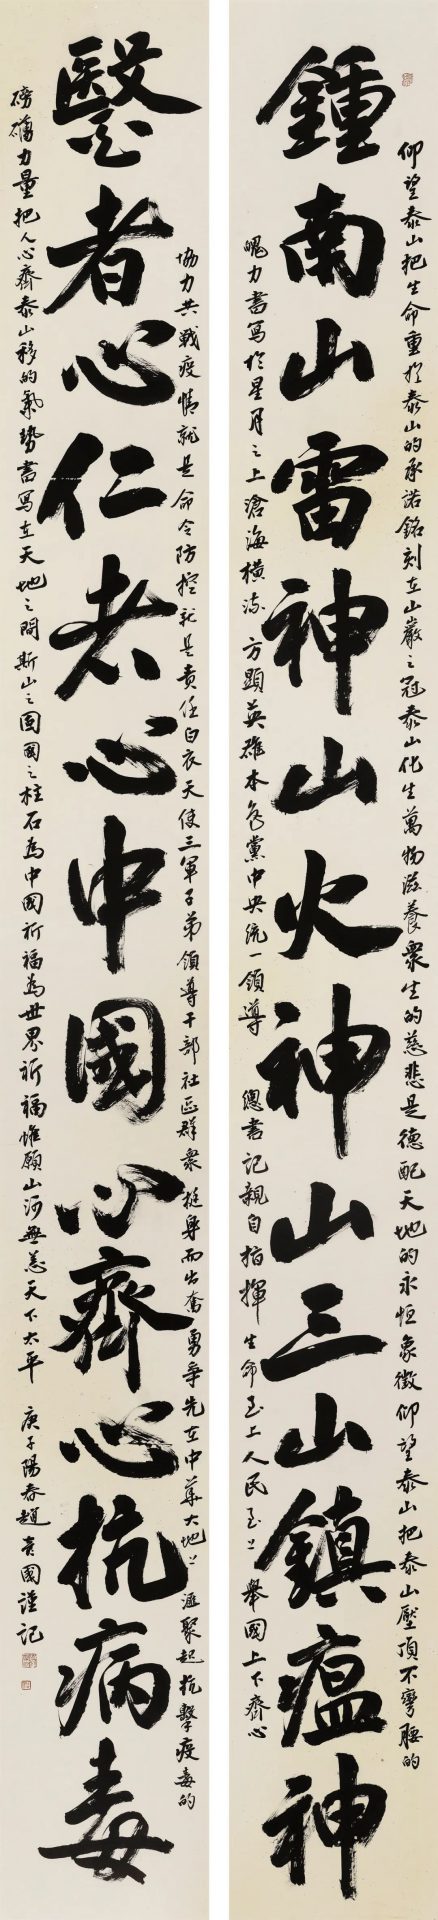 仰望泰山把生命重於泰山的承諾銘刻在山巖之冠泰山化生萬物滋養衆生的慈悲是德配天地的永恒象徵仰望泰山把泰山壓頂不彎腰的
鍾南山雷神山火神山三山鎮瘟神
魄力書寫於星月之上滄海橫流方顯英雄本色黨中央統一領導總書記親自指揮生命至上人民至上舉國上下齊心
協力共戰疫情就是命令防控就是責任白衣天使三軍子弟領導干部社區群衆挺身而出奮勇爭先在中華大地上滙聚起抗擊疫毒的
醫者心仁者心中國心齊心抗病毒
磅礴力量把人心齊泰山移的氣勢書寫在天地之間斯山之固國之柱石為中國祈福為世界祈福惟願山河無恙天下太平 庚子陽春趙貴國謹記